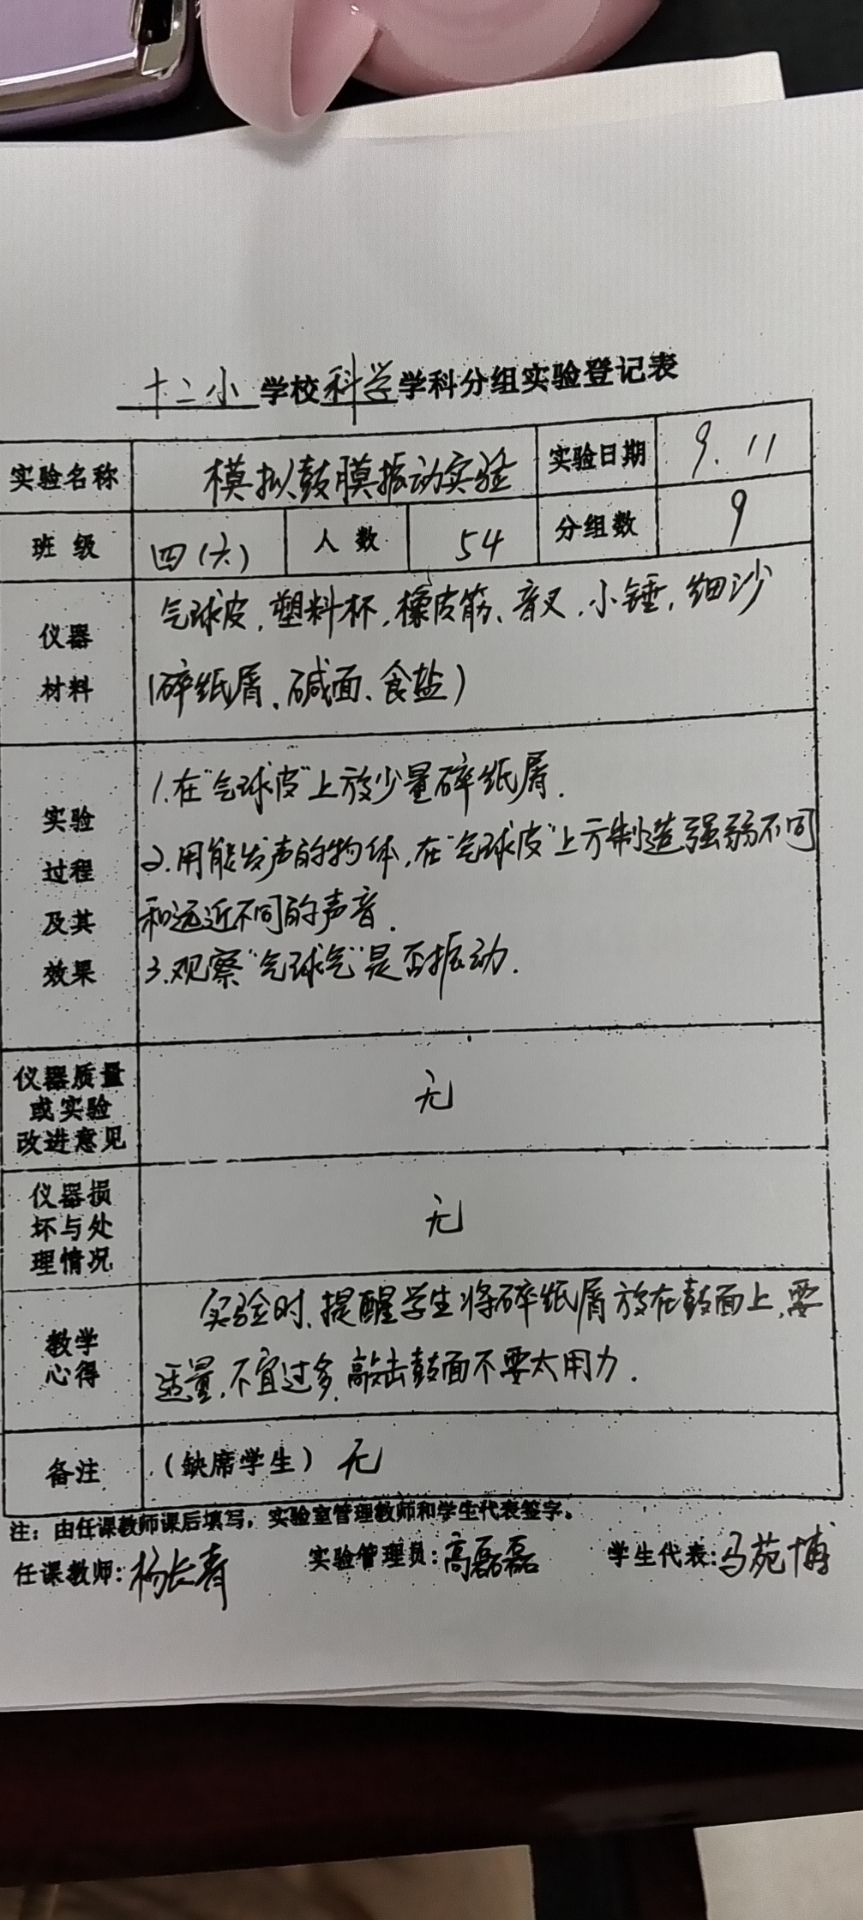 十二小学校科学学科分组实验登记表
实验名称 模拟鼓膜振动实验 实验日期 9.11
班级 四(六) 人数 54 分组数 9
仪器材料
气球皮,塑料杯,橡皮筋、音叉,小锤,细沙
(碎纸屑、碱面、食盐)
实验过程及其效果
1.在"气球皮"上放少量碎纸屑.
2.用能发声的物体,在"气球皮"上方制造强弱不同
和远近不同的声音.
3.观察"气球气"是否振动.
仪器质量或实验改进意见 无
仪器损坏与处理情况 无
教学心得
实验时,提醒学生将碎纸屑放在鼓面上,要
适量,不宜过多,敲击鼓面不要太用力.
备注 (缺席学生)无
注:由任课教师课后填写,实验室管理教师和学生代表签字。
任课教师:杨长青 实验管理员:高磊磊 学生代表:马苑博